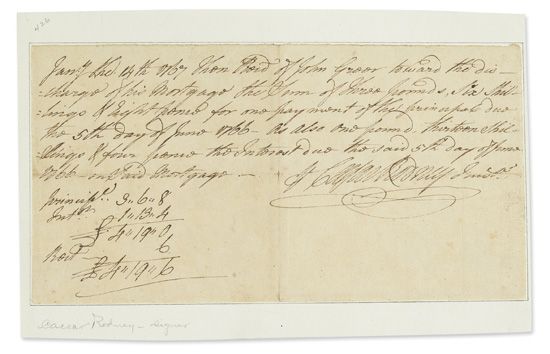 426
Jany. the 14th 1767 Then Recd of John Greer toward the dis-
-charge of his Mortgage the Sum of three pounds, Six Shil-
-lings & Eight pence for one payment of the principal due
the 5th day of June 1766 - As also one pound thirteen Shil-
-lings & four pence the Interest due the said 5th day of June
1766 on said Mortgage -
Cæsar Rodney
Principl. 3" 6" 8
Intst. 1" 13" 4
£ 4" 19" 0
Rect 6
£ 4" 19" 6
Caesar Rodney - Signer